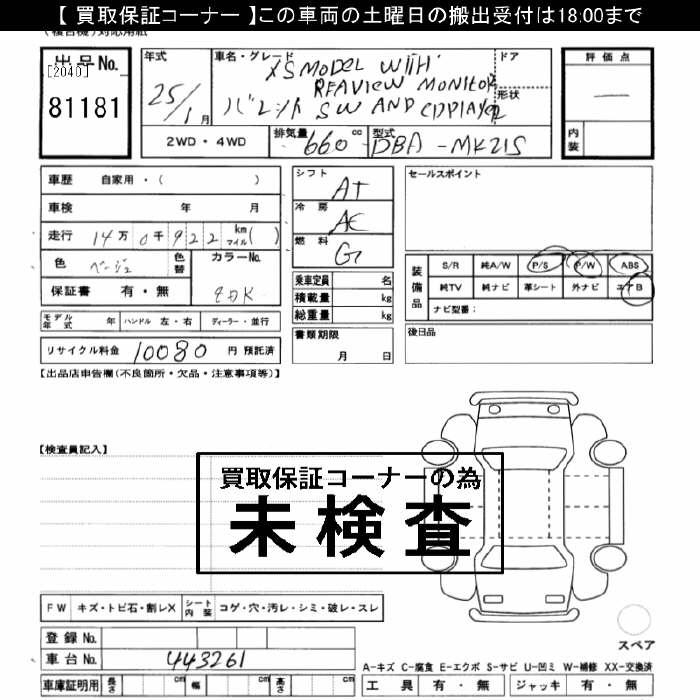 【 買取保証コーナー 】この車両の土曜日の搬出受付は18:00まで
(複合機)対応用紙
出品No.
[2040]
81181
年式
25/1月
車名・グレード
XS MODEL WITH
REAVIEW MONITOR
パレット SW AND CDPLAYER
ドア
形状
評価点
内装
2WD・4WD
排気量 660 cc
型式 DBA-MK21S
車歴 自家用・( )
車検 年 月
走行 14万0千922 km マイル( )
色 ベージュ
色替
カラーNo.
ZDK
保証書 有・無
モデル年式 年 ハンドル 左・右 ディーラー・並行
リサイクル料金 10080 円 預託済
シフト AT
冷房 AC
燃料 G
乗車定員 名
積載量 kg
総重量 kg
書類期限
月 日
セールスポイント
装備品
S/R 純A/W P/S P/W ABS
純TV 純ナビ 革シート 外ナビ エアB
ナビ型番:
後日品
【出品店申告欄(不良箇所・欠品・注意事項等)】
【検査員記入】
買取保証コーナーの為
未検査
FW キズ・トビ石・割レX シート内装 コゲ・穴・汚レ・シミ・破レ・スレ
登録No.
車台No. 443261
車庫証明用 長さ cm 幅 cm 高さ cm
スペア
A-キズ C-腐食 E-エクボ S-サビ U-凹ミ W-補修 XX-交換済
工具 有・無 ジャッキ 有・無